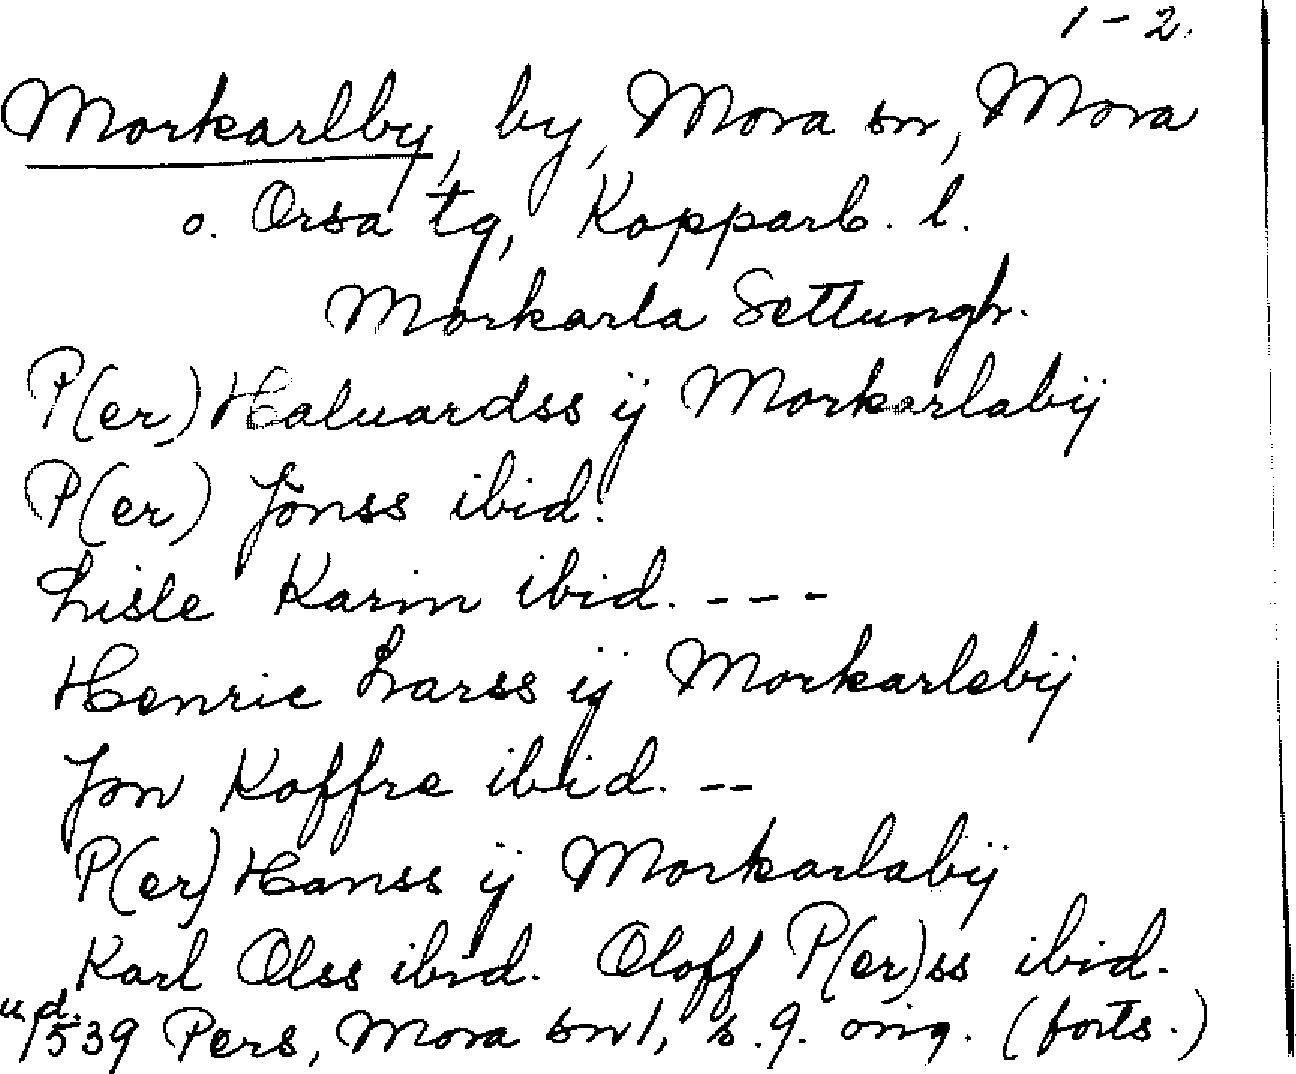 1-2.
Morkarlby, by, Mora sn, Mora
o. Orsa tg, Kopparb. l.
Morkarla Settungh.
P(er) Haluardss ij Morkarlabij
P(er) Jönss ibid.
Lisle Karin ibid. ---
Henric Larss ij Morkarlebij
Jon Koffre ibid. --
P(er) Hanss ij Morkarlabij
Karl Olss ibid. Oloff P(er)ss ibid.
u.d. 1539 Pers, Mora sn 1, s. 9. orig. (forts.)